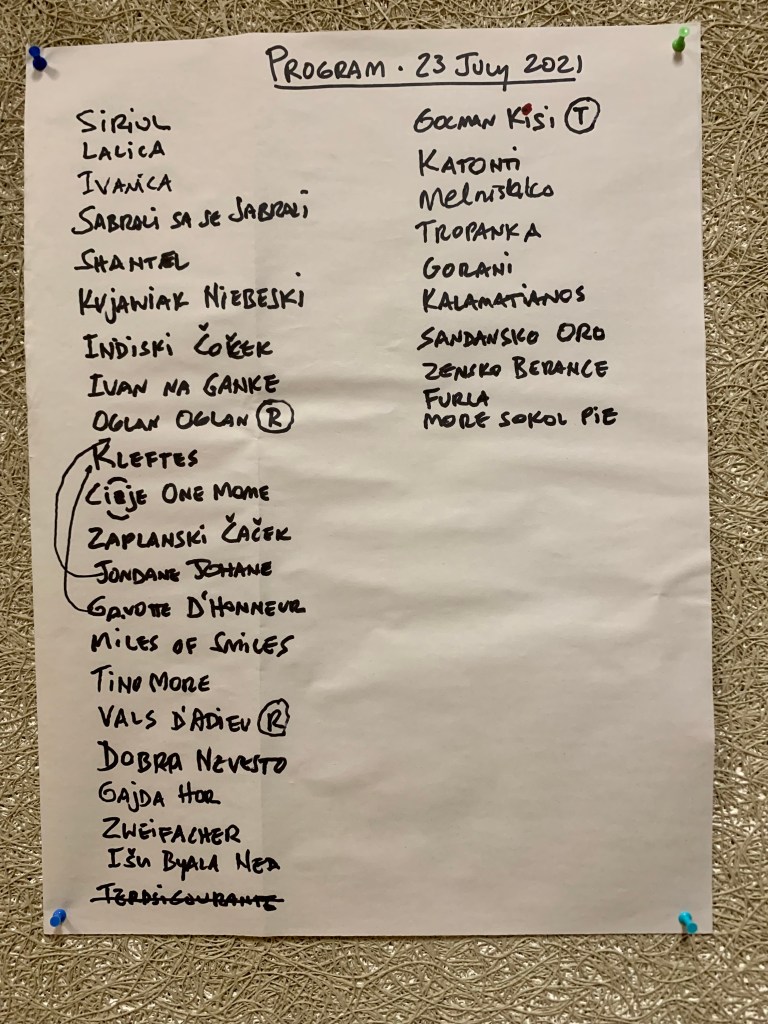 PROGRAM · 23 JULY 2021
SIRIUL
LALICA
IVANICA
SABRALI SA SE SABRALI
SHANTEL
KUJAWIAK NIEBESKI
INDISKI ČOČEK
IVAN NA GANKE
OGLAN OGLAN R
KLEFTES
Cieje ONE MOME
ZAPLANSKI ČAČEK
JONDANE JOHANE
GAVOTTE D'HONNEUR
MILES OF SMILES
TINO MORE
VALS D'ADIEU R
DOBRA NEVESTO
GAJDA HOR
ZWEIFACHER
IŠU BYALA NEDA
GOCMAN KISI T
KATONTI
Melnishko
TROPANKA
GORANI
KALAMATIANOS
SANDANSKO ORO
ZENSKO BERANCE
FURLA
MORE SOKOL PIE